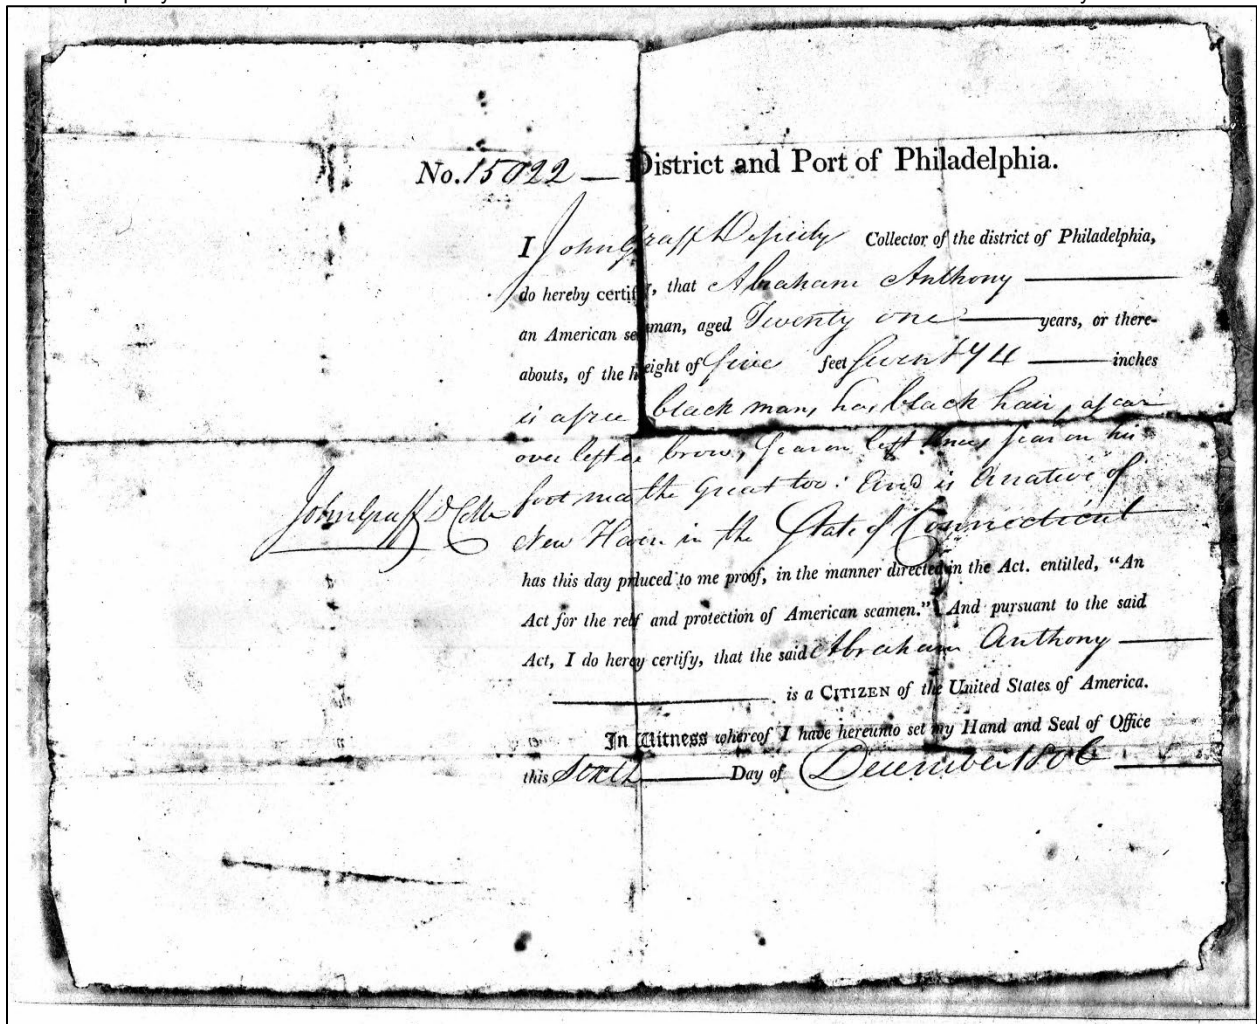 No. 15022 — District and Port of Philadelphia.
I John Graff Deputy Collector of the district of Philadelphia,
do hereby certify, that Abraham Anthony
an American seaman, aged Twenty one years, or there-
abouts, of the height of five feet inches
is a free black man, has black hair, a scar
over left brow, Scar on left knee, scar on his
foot near the great toe: And is a native of
John Graff D Collr
New Haven in the State of Connecticut
has this day pruced to me proof, in the manner directed in the Act. entitled, "An
Act for the relf and protection of American seamen." And pursuant to the said
Act, I do herey certify, that the said Abraham Anthony
is a CITIZEN of the United States of America.
In Witness whereof I have hereunto set my Hand and Seal of Office
this Sixth Day of December 1806